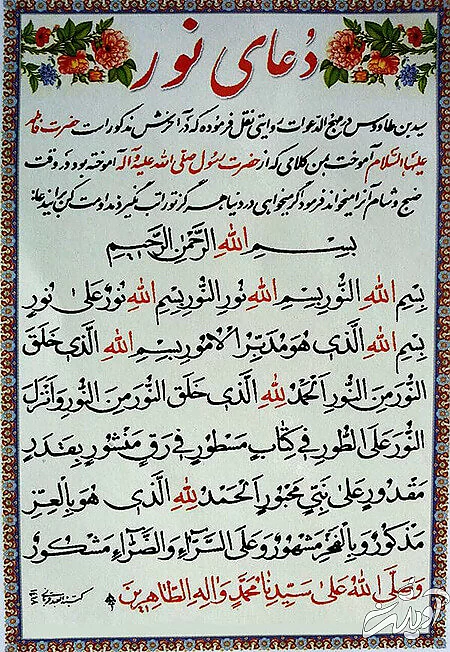 دعای نور
سید بن طاووس در مهج الدعوات روایتی نقل فرموده که در آخرش مذکور است حضرت فاطمه
علیها السلام آموخت بمن کلامی که از حضرت رسول صلی الله علیه و آله آموخته بود و در وقت
صبح و شام آنرا میخواند فرمود گر میخواهی در دنیا هرگز تو را تب نگیرد مداومت کن بر آن
بِسْمِ اللهِ الرَّحْمٰنِ الرَّحيمِ
بِسْمِ اللهِ النُّورِ بِسْمِ اللهِ نُورِ النُّورِ بِسْمِ اللهِ نُورٌ عَلیٰ نُورٍ
بِسْمِ اللهِ الَّذی هُوَ مُدَبِّرُ الْاُمُورِ بِسْمِ اللهِ الَّذی خَلَقَ
النُّورَ مِنَ النُّورِ اَلْحَمْدُ لِلهِ الَّذی خَلَقَ النُّورَ مِنَ النُّورِ وَ اَنْزَلَ
النُّورَ عَلَی الطُّورِ فی کِتابٍ مَسْطُورٍ فی رَقٍّ مَنْشُورٍ بِقَدَرٍ
مَقْدُورٍ عَلیٰ نَبِیٍّ مَحْبُورٍ اَلْحَمْدُ لِلهِ الَّذی هُوَ بِالْعِزِّ
مَذْکُورٌ وَ بِالْفَخْرِ مَشْهُورٌ وَ عَلَی السَّرّاءِ وَ الضَّرّاءِ مَشْکُورٌ
وَ صَلَّی اللهُ عَلیٰ سَیِّدِنا مُحَمَّدٍ وَ الِهِ الطّاهِرینَ